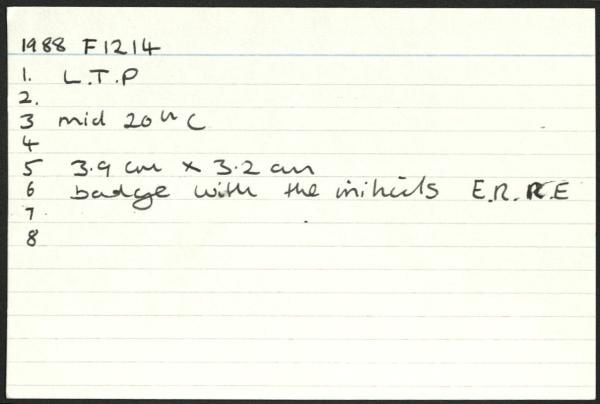 1988 F1214
1. L.T.P
2.
3 mid 20th C
4
5 3.9 cm x 3.2 cm
6 badge with the initials E.R.R.E
7
8